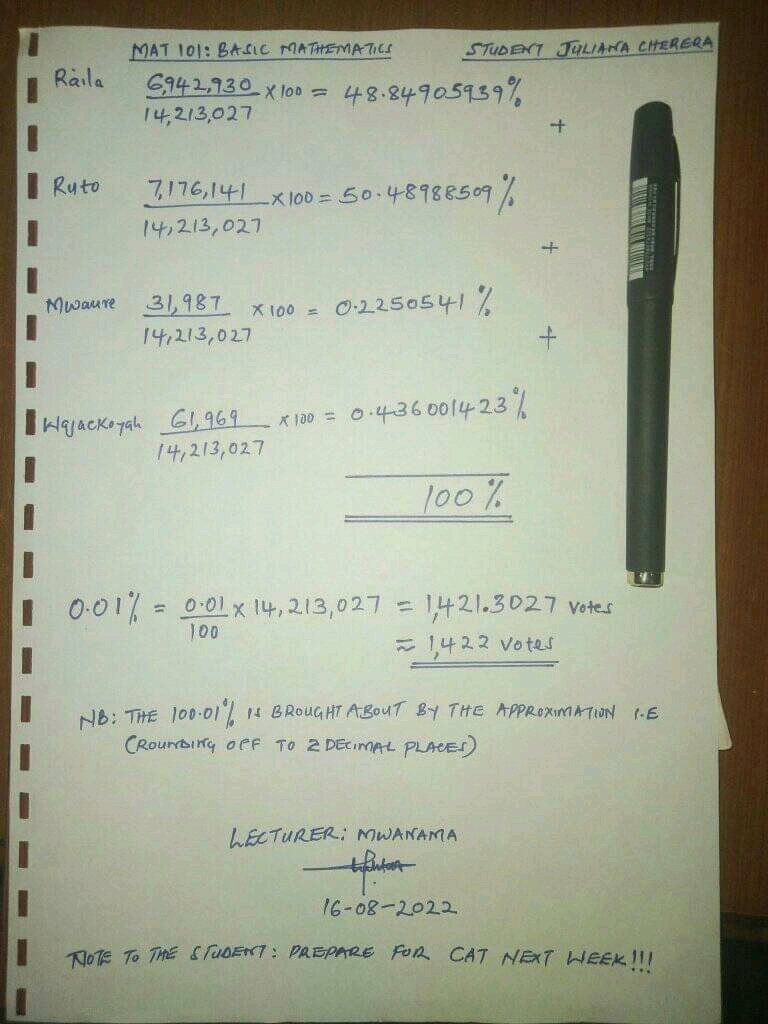 MAT 101: BASIC MATHEMATICS STUDENT JULIANA CHERERA
Raila 6,942,930 / 14,213,027 x 100 = 48.84905939%
+
Ruto 7,176,141 / 14,213,027 x 100 = 50.48988509%
+
Mwaure 31,987 / 14,213,027 x 100 = 0.2250541%
+
Wajackoyah 61,969 / 14,213,027 x 100 = 0.436001423%
100%
0.01% = 0.01 / 100 x 14,213,027 = 1,421.3027 votes
≈ 1,422 votes
NB: THE 100.01% IS BROUGHT ABOUT BY THE APPROXIMATION I.E
(ROUNDING OFF TO 2 DECIMAL PLACES)
LECTURER: MWANAMA
16-08-2022
NOTE TO THE STUDENT: PREPARE FOR CAT NEXT WEEK!!!